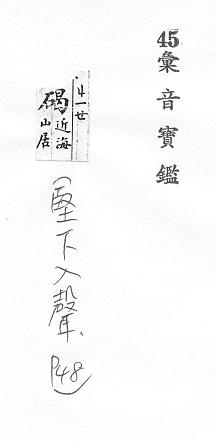 45彙音寶鑑
ㄐㄧㄝ
碣近海
山居
(堅下入聲、P48)